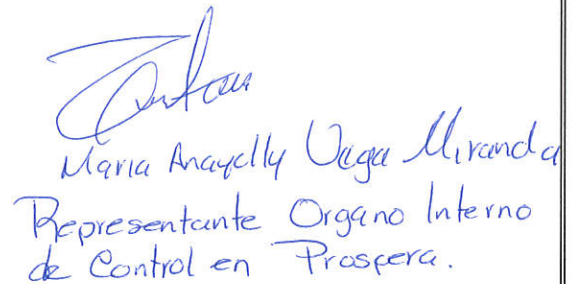 Maria Anayelly Vega Miranda
Representante Organo Interno
de Control en Prospera.